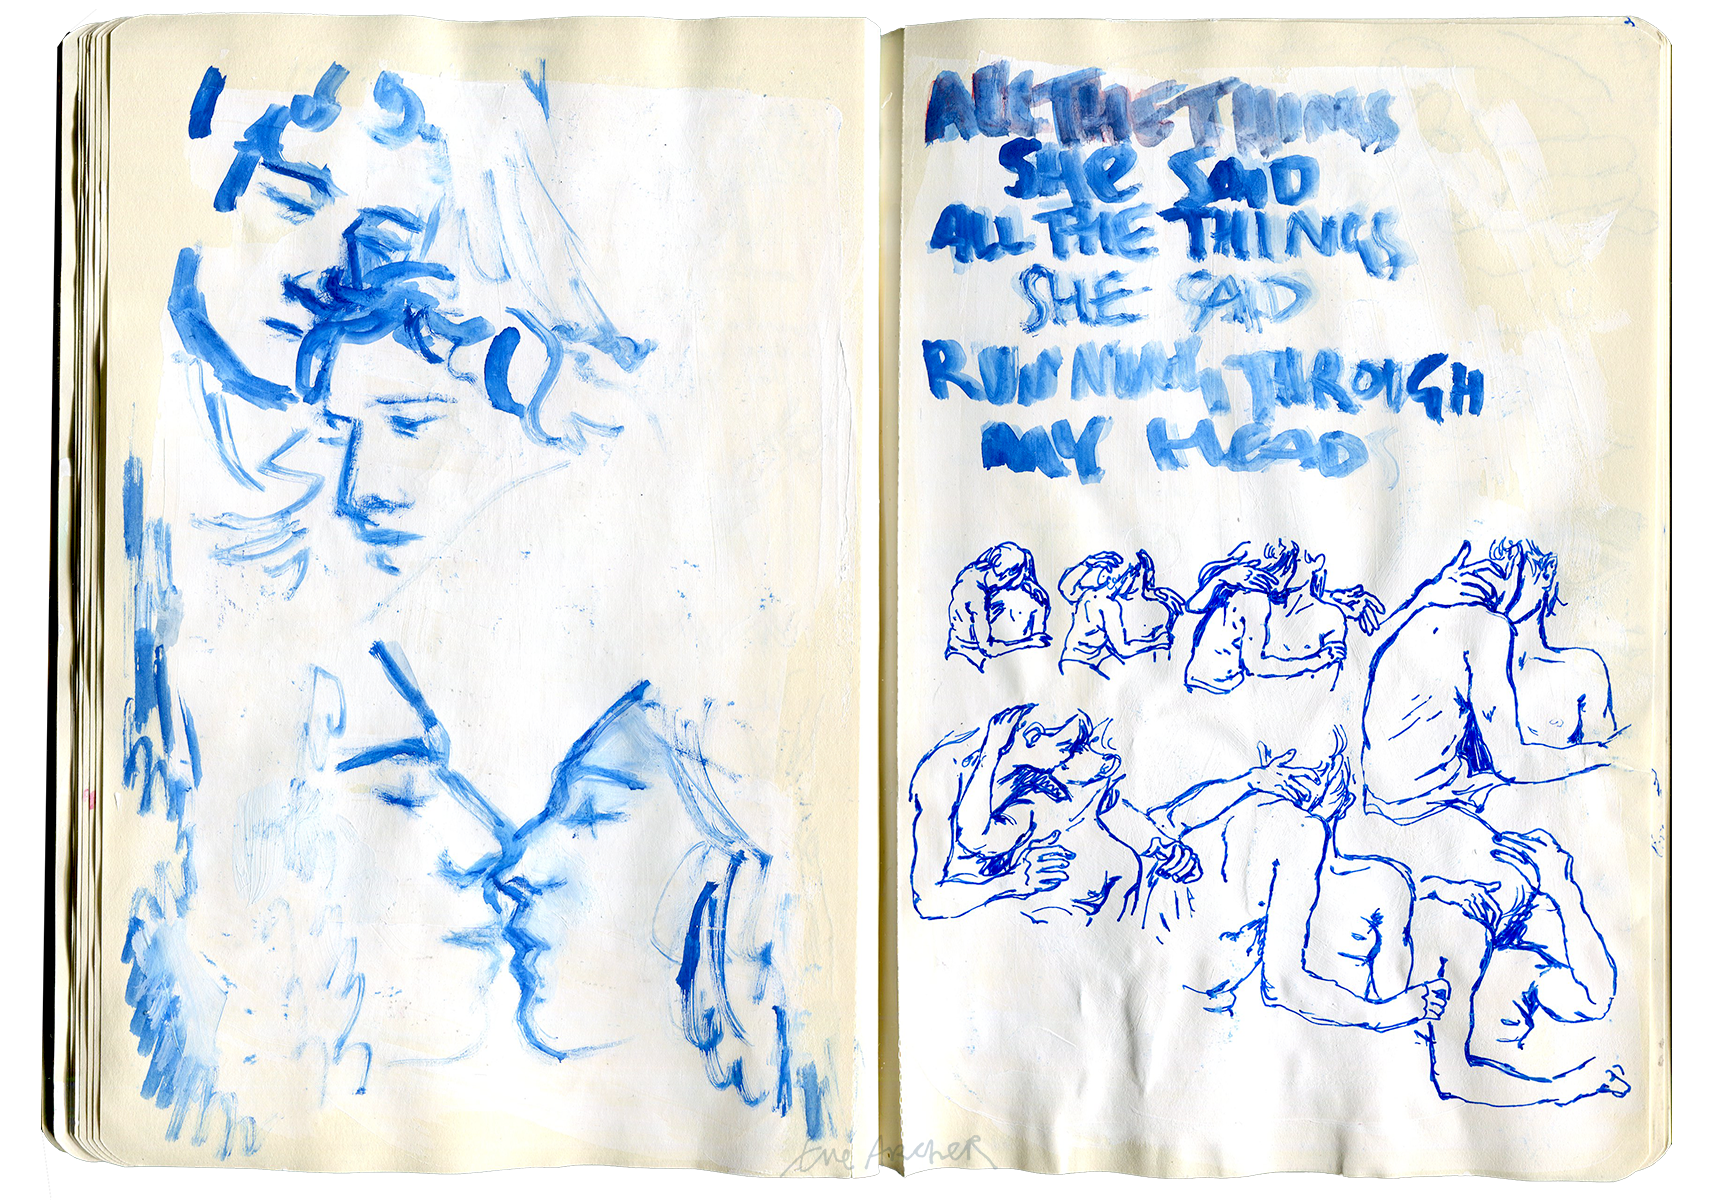 ALL THE THINGS
SHE SAID
ALL THE THINGS
SHE SAID
RUNNING THROUGH
MY HEAD
Eve Archer